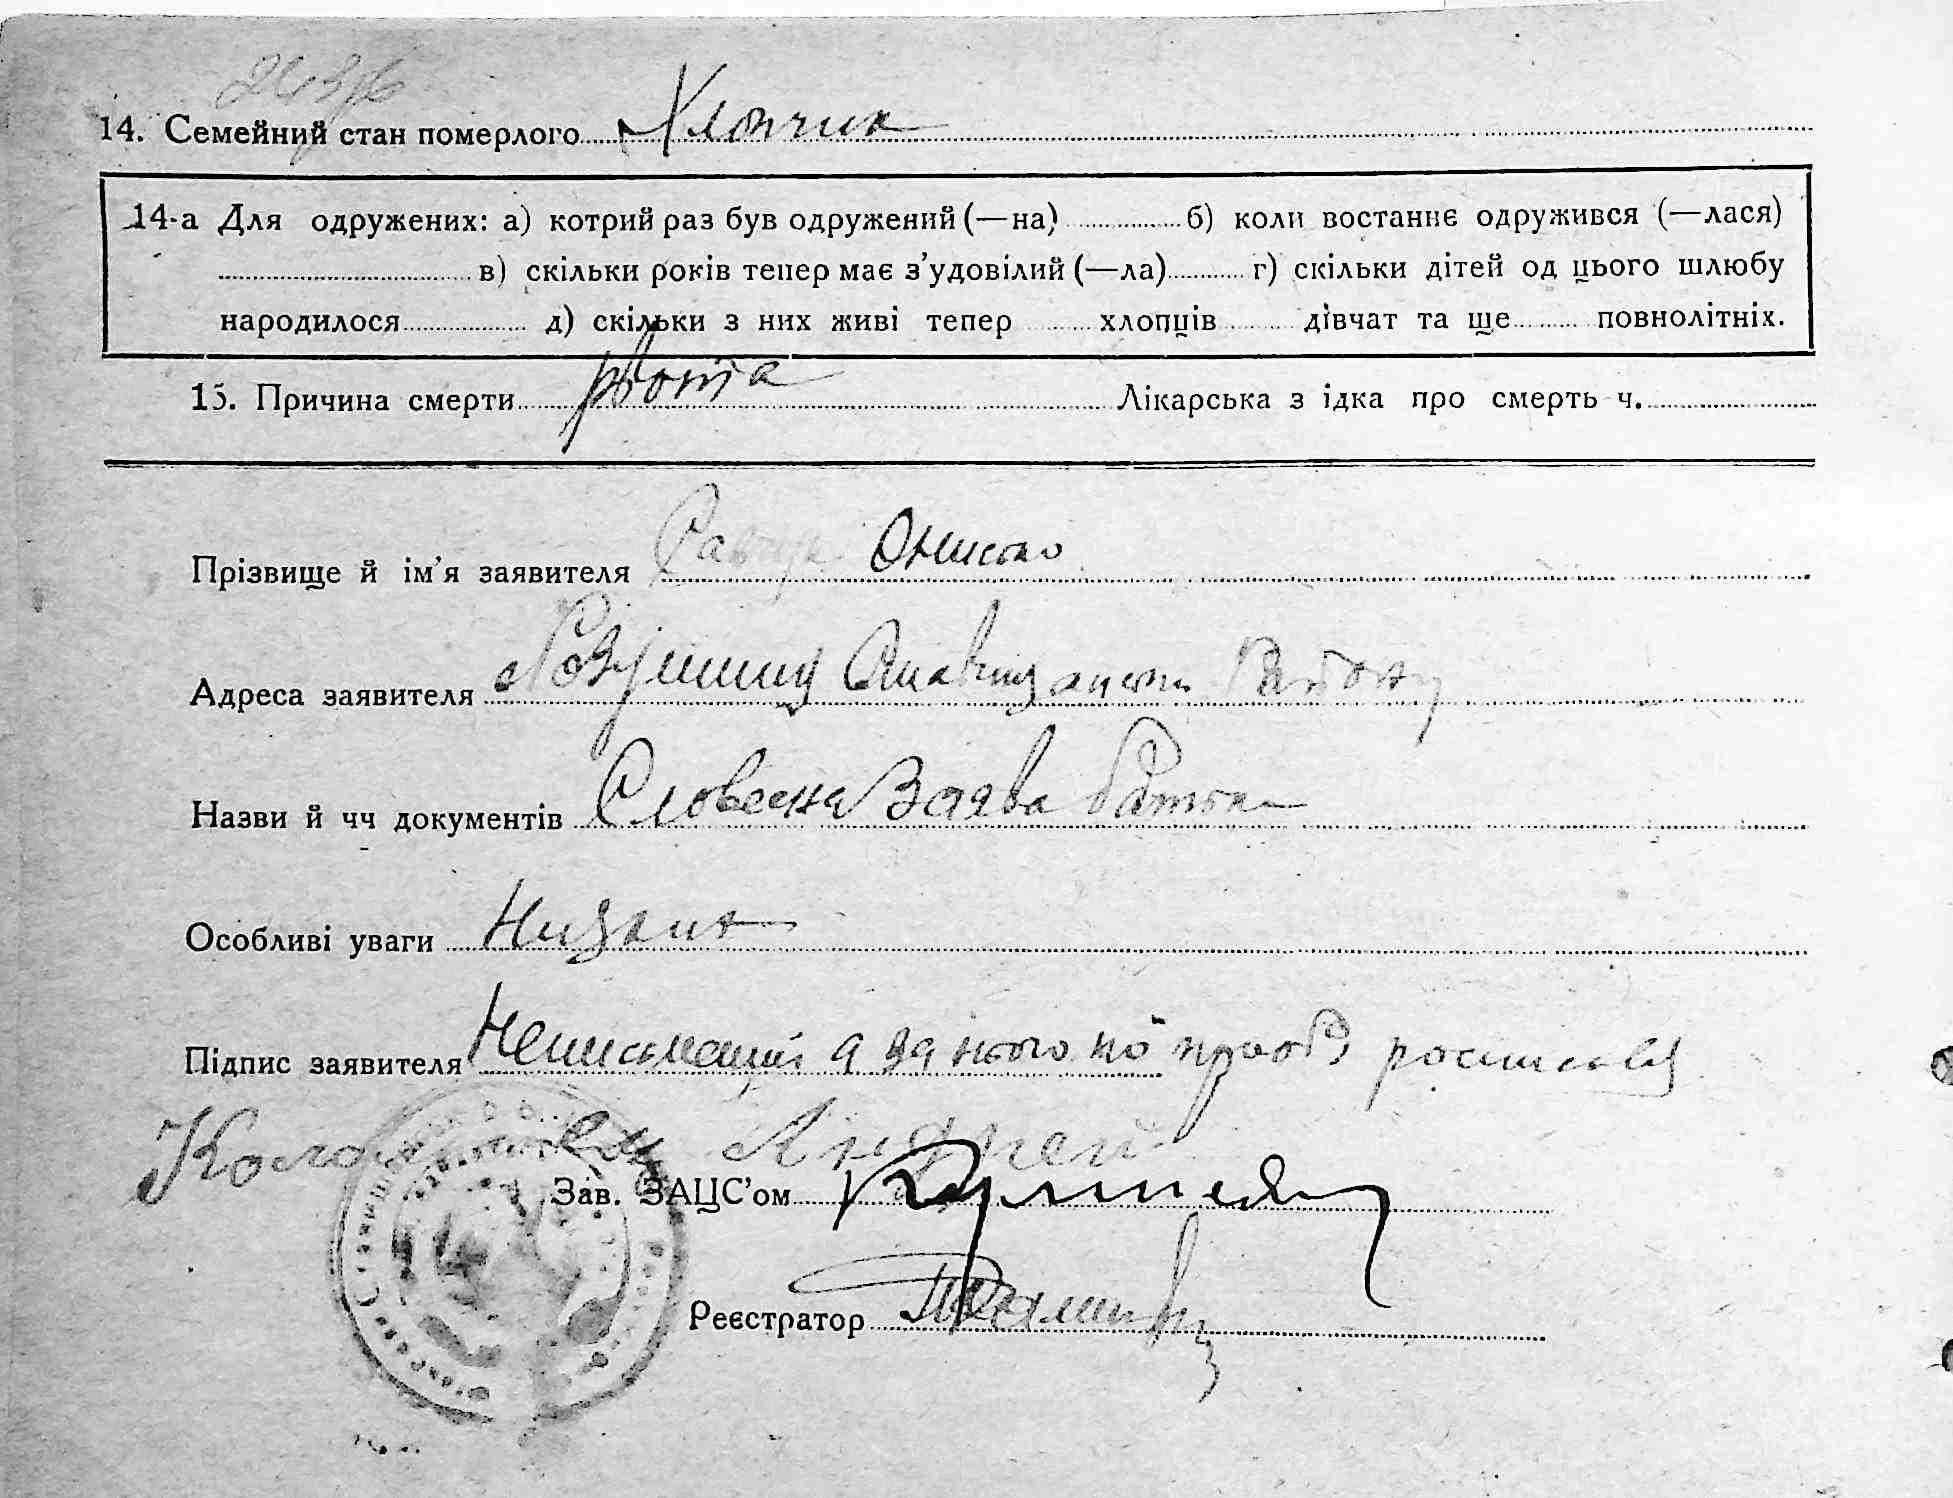 14. Семейний стан померлого Хлопчик
14-а Для одружених: а) котрий раз був одружений (—на) б) коли востаннє одружився (—лася)
в) скільки років тепер має з'удовілий (—ла) г) скільки дітей од цього шлюбу
народилося д) скільки з них живі тепер хлопців дівчат та ще повнолітніх.
15. Причина смерти рвота Лікарська з ідка про смерть ч.
Прізвище й ім'я заявителя Савчук Онисько
Адреса заявителя Району
Назви й чч документів Словесна Заява батька
Особливі уваги
Підпис заявителя Неписьмений а за нього по прозбі росписався
Андрей
Зав. ЗАЦС'ом
Реєстратор